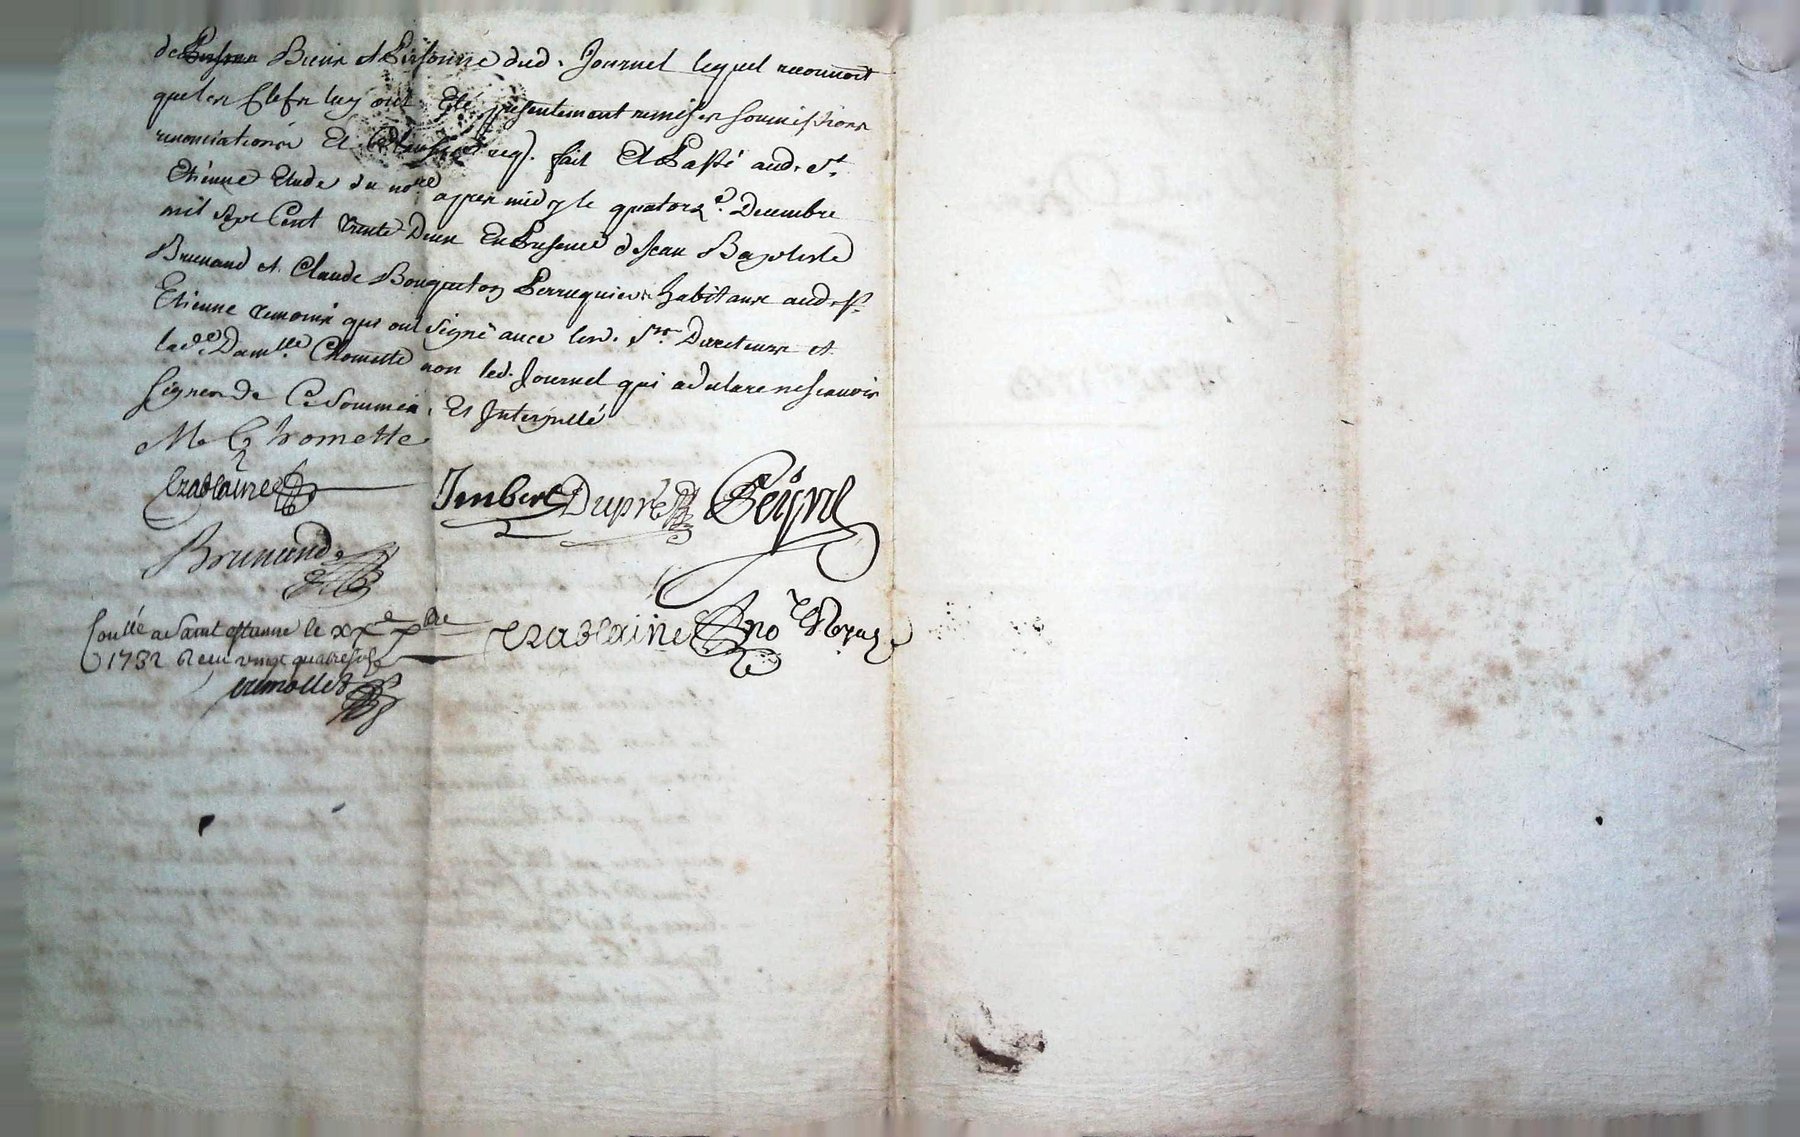 Biens et Personne dud. Journel lequel reconnoit
que les clefs luy ont Eté presentement remises soumissions
renonciations Et Clauses req). fait Et Passé aud. St.
Etienne Etude du nore apres midy le quatorze. Decembre
mil sept Cent trente Deux En Presence de Jean Baptiste
Brunand et Claude Bouqueton Perruquiers habitans aud. St.
Etienne temoins qui ont signé avec lesd. Srs. Directeurs et
lade. Damlle. Chomette non led. Journel qui a declaré ne scavoir
signer de Ce sommés. Et Interpellé
M Chomette
Imbert Dupré
Brunand
Conllé a Saint estienne le xxe xbre
1732 Receu vingt quatre sols
nore Royal